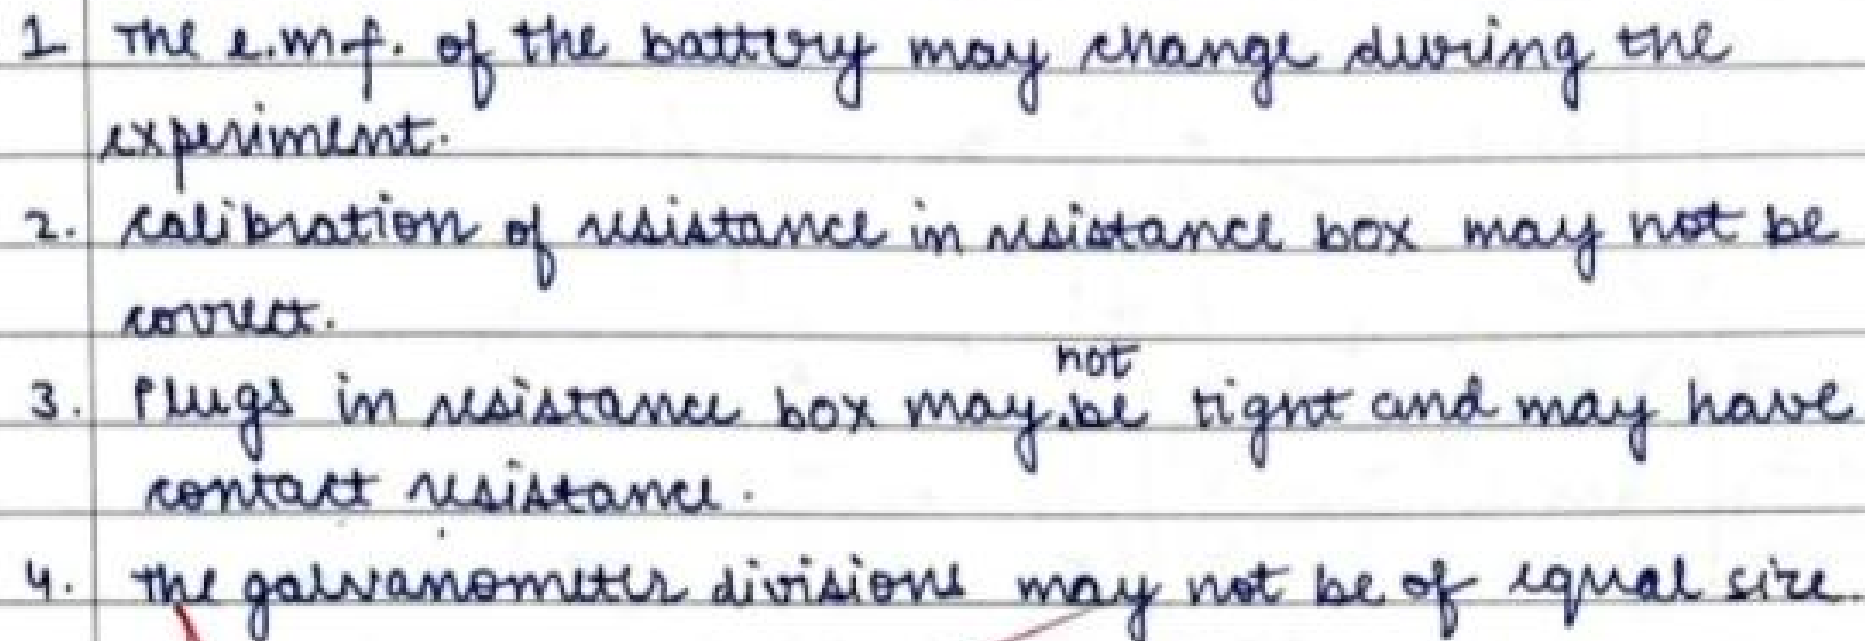 1 The e.m.f. of the battery may change during the
experiment.
2. calibration of resistance in resistance box may not be
correct.
3. Plugs in resistance box may not be tight and may have
contact resistance.
4. the galvanometer divisions may not be of equal size.